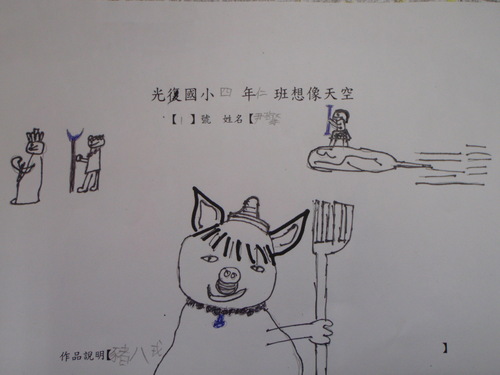 光復國小四年仁班想像天空
【1】號 姓名【尹
作品說明【豬八戒 】